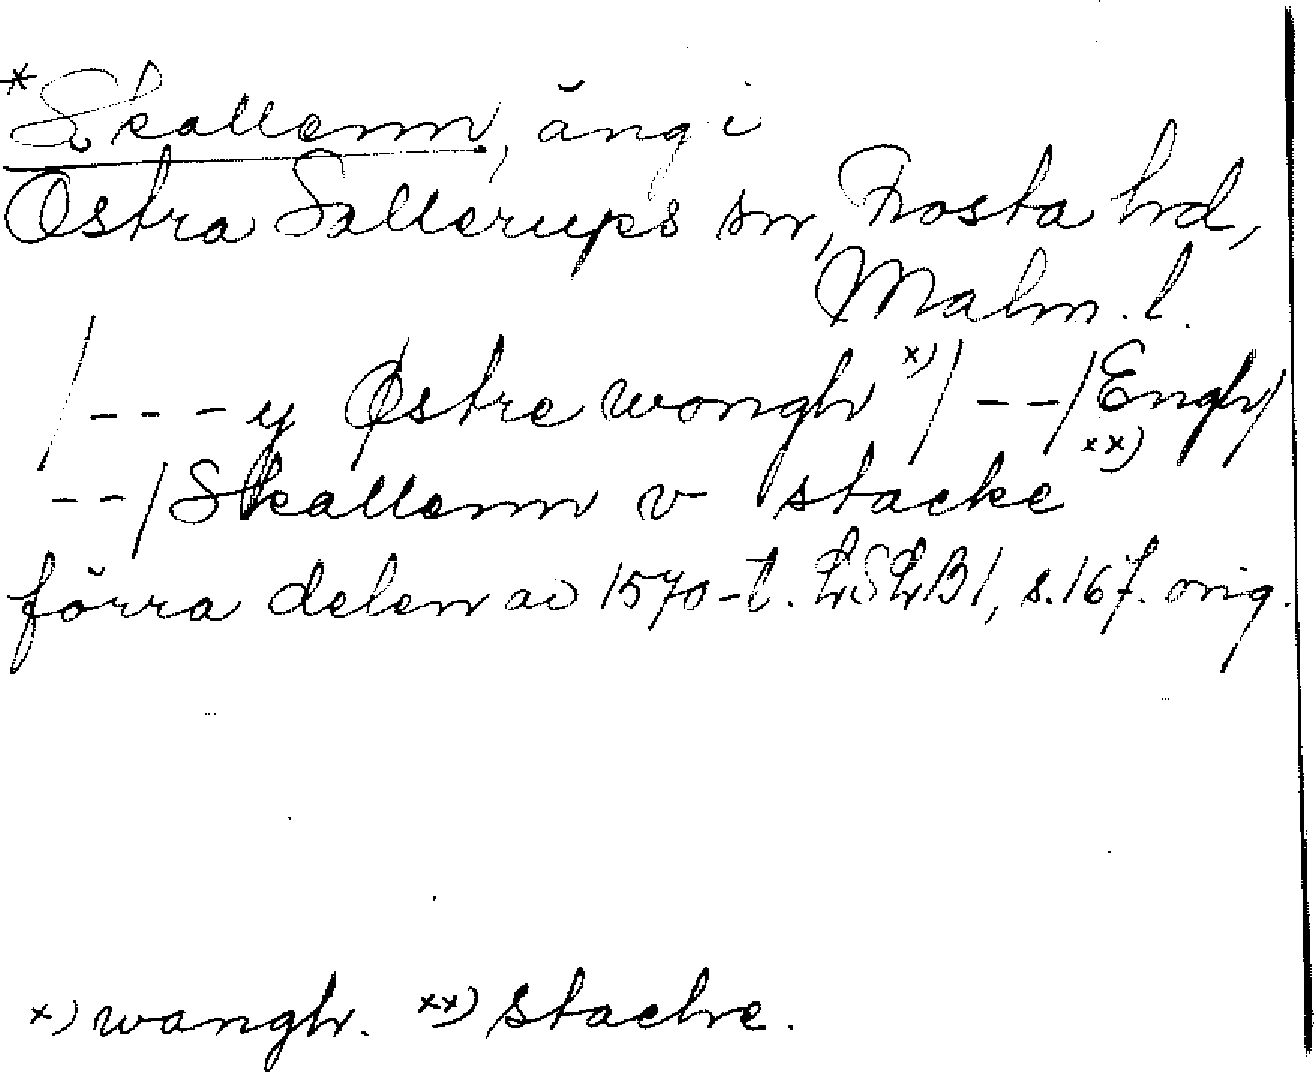 *Skallenn, äng i
Östra Sallerups sn, Frosta hd,
Malm. l.
/--- y Østre wongh x)/ --/Engh/
--/ Skallenn v stacke xx)
förra delen av 1570-t. LSLB1, s.167. orig.
x) wangh. xx) stache.